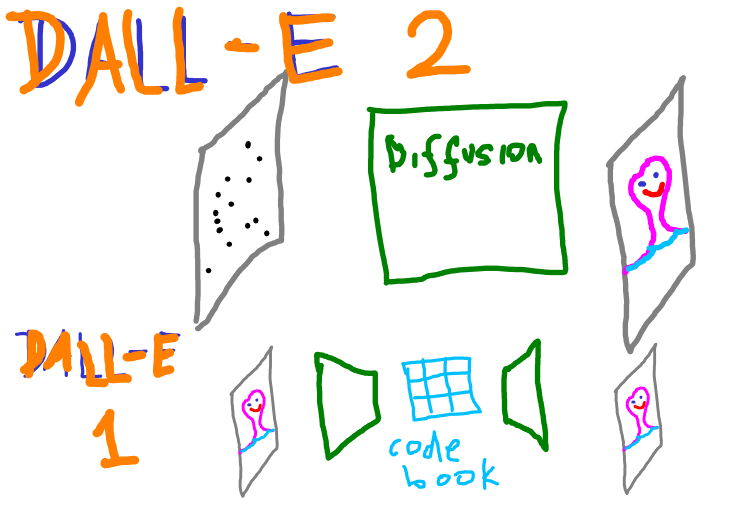 DALL-E 2
Diffusion
DALL-E
1
code
book